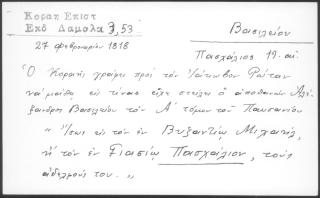 Κοραη Επιστ
Εκδ Δαμαλα 3,53
Βασιλείου
27 Φεβρουαρίου 1818
Πασχάλιος 19 αἰ.
Ὁ Κοραῆς γράφει πρὸς τὸν Ἰάκωβον Ρώταν
νὰ μάθῃ εἰς τίνας εἶχε στείλει ὁ ἀποθανὼν Ἀλέ-
ξανδρος Βασιλείου τὸν Α΄ τόμον τοῦ Παυσανίου
" Ἴσως εἰς τὸν ἐν Βυζαντίῳ Μιχαήλ,
ἢ τὸν ἐν Γιασίῳ Πασχάλιον, τοὺς
ἀδελφούς του. "